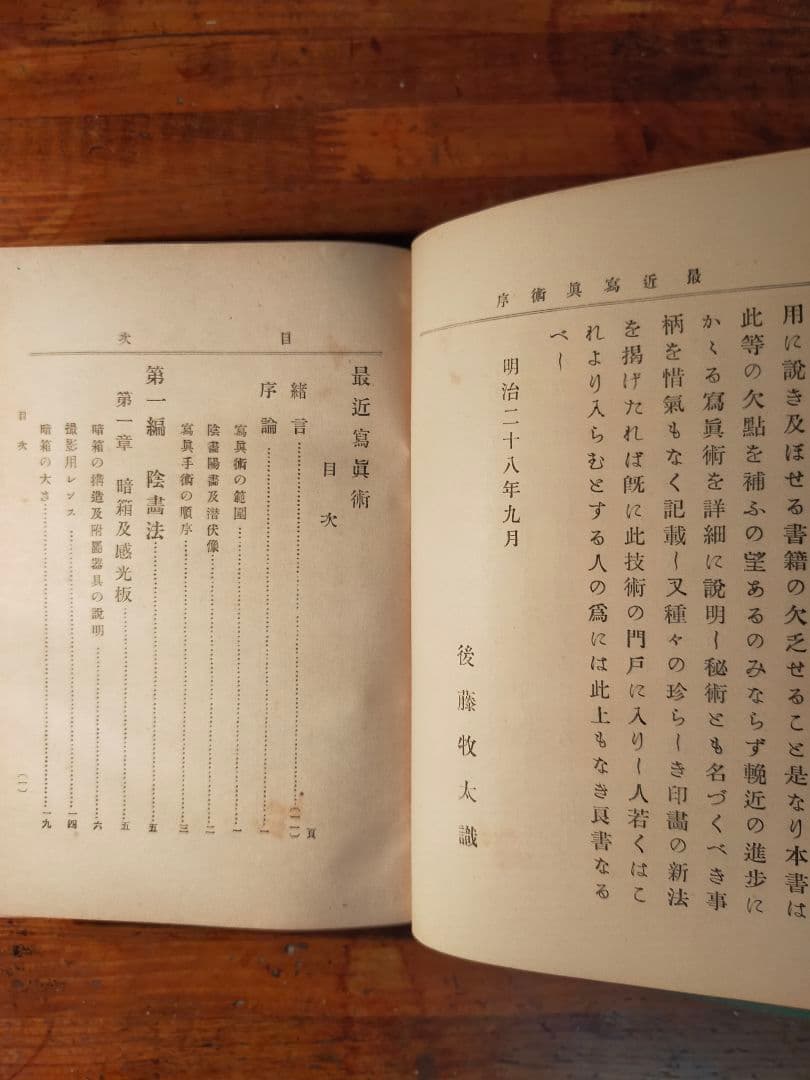 最近寫眞術序
用に說き及ぼせる書籍の欠乏せること是なり本書は
此等の欠點を補ふの望あるのみならず輓近の進步に
かくる寫眞術を詳細に說明し秘術とも名づくべき事
柄を惜氣もなく記載し又種々の珍らしき印畫の新法
を揭げたれば旣に此技術の門戶に入りし人若くはこ
れより入らむとする人の爲には此上もなき良書なる
べし
明治二十八年九月
後藤牧太識
目次
最近寫眞術
目次
頁
緖言……(一一)
序論……一
寫眞術の範圍……一
陰畵陽畵及潛伏像……二
寫眞手術の順序……三
第一編 陰畵法……五
第一章 暗箱及感光板……五
暗箱の構造及附屬器具の說明……六
撮影用レンス……一四
暗箱の大さ……一九
目次
(一)